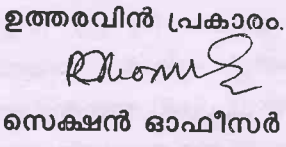 ഉത്തരവിൻ പ്രകാരം.
സെക്ഷൻ ഓഫീസർ